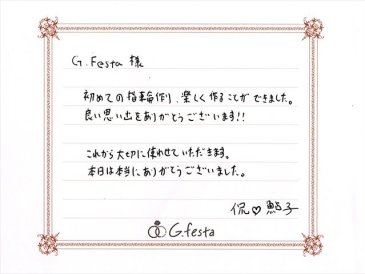 G.Festa 様
初めての指輪作り、楽しく作ることができました。
良い思い出をありがとうございます!!
これから大切に使わせていただきます。
本日は本当にありがとうございました。
侃♡鮎子
G.festa